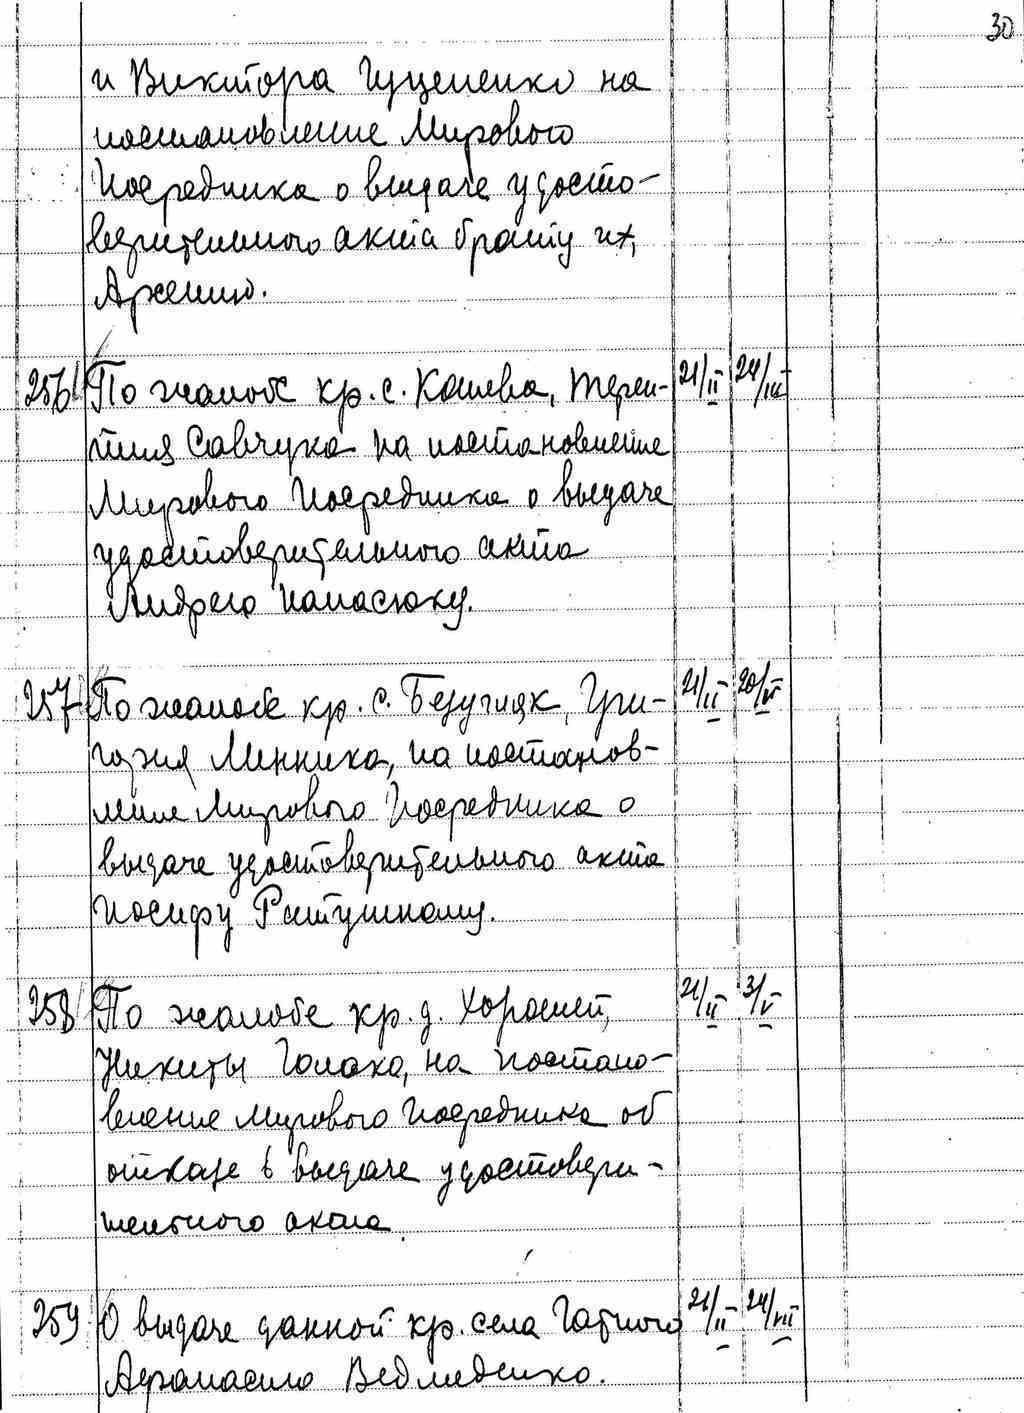 30
и Виктора Гуцеленко на
постановление Мирового
Посредника о выдаче удосто-
верительного акта брату их,
Арсению.
256 По жалобе кр. с. Кошева, Терен- 21/II 24/III
тия Савчука на постановление
Мирового Посредника о выдаче
удостоверительного акта
Андрею Панасюку.
257 По жалобе кр. с. Безугляк, Гри- 21/II 20/VI
гория Минника, на постанов-
ление Мирового Посредника о
выдаче удостоверительного акта
Иосифу Ратушному.
258 По жалобе кр. д. Хорошей, 21/II 3/V
Никиты Голака, на постано-
вление Мирового Посредника об
отказе в выдаче удостовери-
тельного акта
259 О выдаче данной кр. села Гатного 21/II 24/VII
Афанасию Ведмеденко.